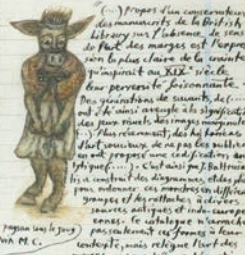 "(...) Propos d'un conservateur
des manuscrits de la British
Library sur l'absence de sens
de l'art des marges est l'expres
sion la plus claire de la crainte
qu'inspirait au XIXe siècle
leur perversité foisonnante.
Des générations de savants, de (...)
ont été ainsi aveugle à la signification
des jeux visuels des images marginales
(...) Plus récemment, des historiens
d'art soucieux de ne pas les oublier
en ont proposé une codification
(...) C'est ainsi que J. Baltrusaitis
a construit des diagrammes, et des
pour ordonner ces monstres en différents
groupes et les rattacher à divers
sources antiques et indo-europé
ennes. Le catalogue n'arrache
pas seulement ces formes à leur
contexte, mais relègue l'art des
paysan sous le joug
VIA M.C.